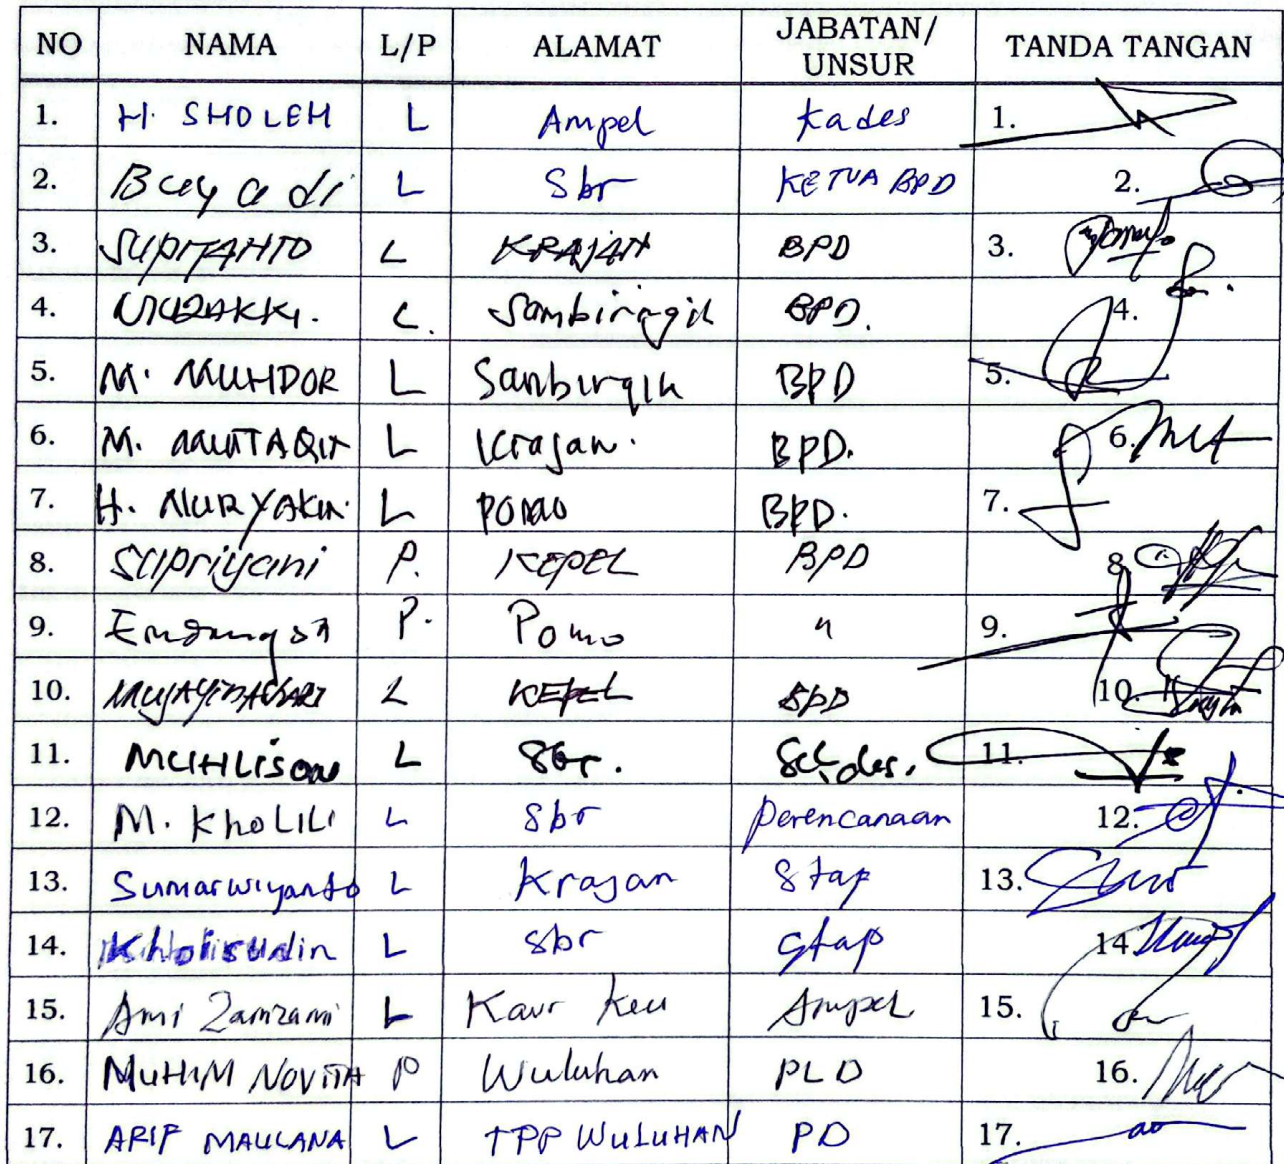 NO NAMA L/P ALAMAT JABATAN/ UNSUR TANDA TANGAN
1. H. SHOLEH L Ampel Kades 1.
2. Bayadi L Sbr KETUA BPD 2.
3. SUPIYANTO L KRAJAN BPD 3.
4. MUZAKKI. L. Sambiringik BPD. 4.
5. M. MUHDOR L Sanbirigik BPD 5.
6. M. MUTTAQIN L Krajan. BPD. 6.
7. H. NURYAKIN. L POMO BPD. 7.
8. Supriyani P. KEPEL BPD 8.
9. P. Pomo " 9.
10. L KEPEL BPD 10.
11. MUHLISON L Sbr. Sekdes. 11.
12. M. KhoLILI L Sbr Perencanaan 12.
13. Sumarwiyanto L Krajan Stap 13.
14. Kholisudin L Sbr Stap 14.
15. Ami Zamzami L Kaur Keu Ampel 15.
16. MUHIM NOVITA P Wuluhan PLD 16.
17. ARIF MAULANA L TPP WULUHAN PD 17.